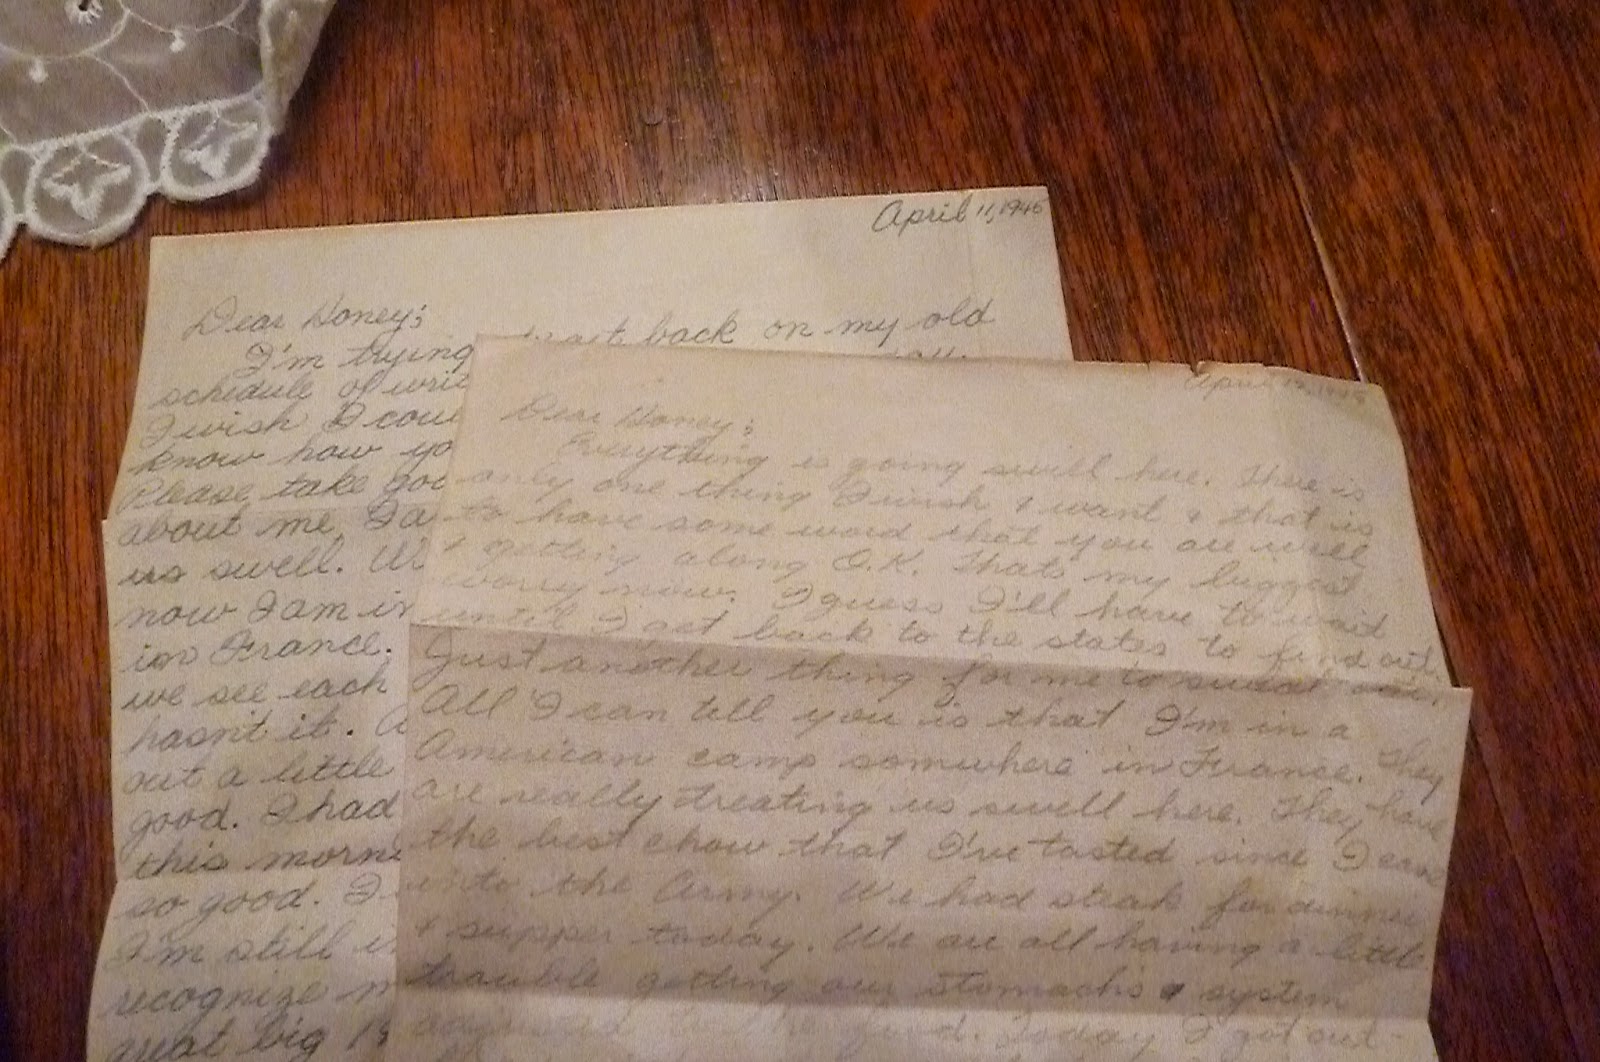 April 11, 1945
Dear Honey;
I'm trying to get back on my old
schedule of wri
I wish I cou
know how yo
Please take goo
about me, I a
us swell. W
now I am in
in France.
we see each
hasn't it. A
out a little
good. I had
this morni
so good. I
I'm still i
recognize m
great big
April 1945
Dear Honey;
Everything is going swell here. There is
only one thing I wish & want & that is
to have some word that you are well
& getting along O.K. Thats my biggest
worry now. I guess I'll have to wait
until I get back to the states to find out.
Just another thing for me to sweat out.
All I can tell you is that I'm in a
American camp somwhere in France. They
are really treating us swell here. They have
the best chow that I've tasted since I came
into the Army. We had steak for dinner
& supper today. We are all having a little
trouble getting our stomachs & system
adjusted to the food. Today I got out-